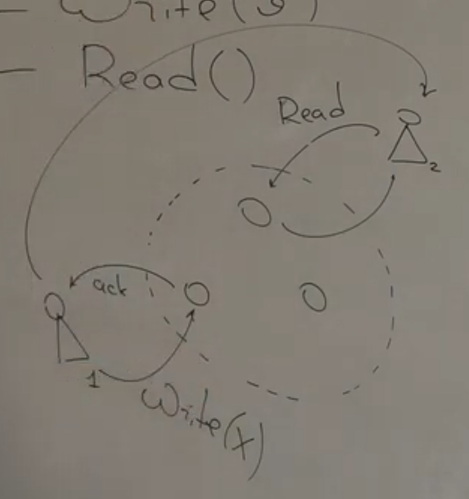 - Write(9)
- Read()
Read
2
ack
1
Write(x)